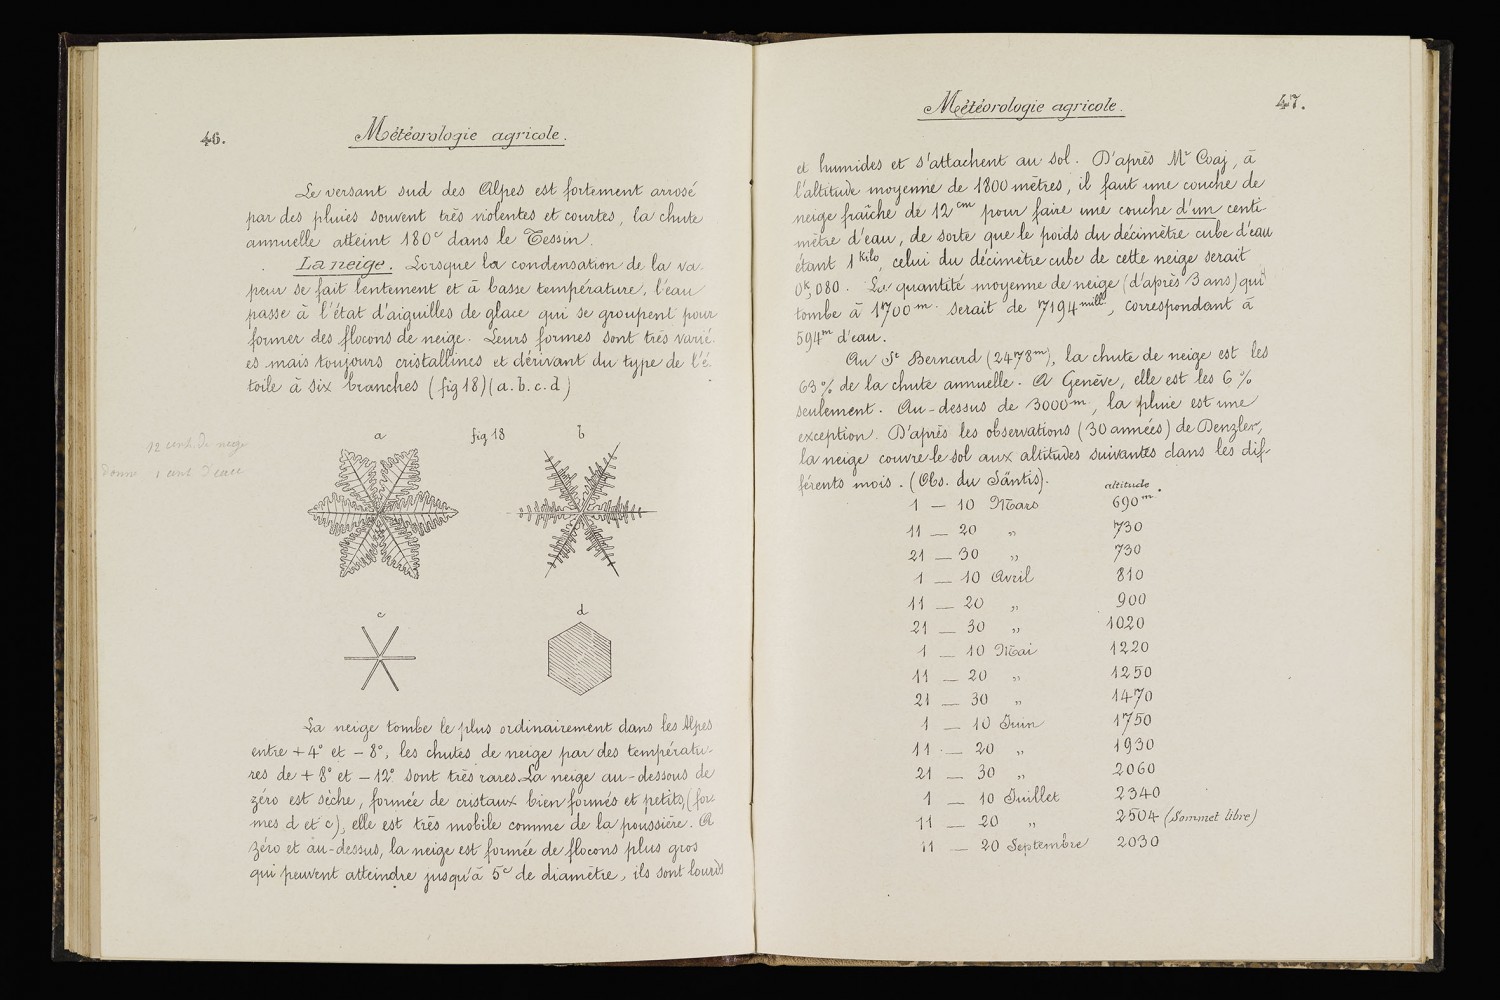 46.
Météorologie agricole.
Le versant sud des Alpes est fortement arrosé
par des pluies souvent très violentes et courtes, la chute
annuelle atteint 180c dans le Tessin.
La neige. Lorsque la condensation de la va-
peur se fait lentement et à basse température, l'eau
passe à l'état d'aiguilles de glace qui se groupent pour
former des flocons de neige. Leurs formes sont très varié-
es mais toujours cristallines et dérivant du type de l'é-
toile à six branches (fig 18) (a. b. c. d)
12 cent. de neige
donne 1 cent d'eau
a
fig 18
b
c
d
La neige tombe le plus ordinairement dans les Alpes
entre + 4° et - 8°, les chutes de neige par des températu-
res de + 8° et - 12° sont très rares. La neige au-dessous de
zéro est sèche, formée de cristaux bien formés et petits, (for-
mes d et c), elle est très mobile comme de la poussière. A
zéro et au-dessus, la neige est formée de flocons plus gros
qui peuvent atteindre jusqu'à 5c de diamètre, ils sont lourds
Météorologie agricole.
47.
et humides et s'attachent au sol. D'après Mr Coaj, à
l'altitude moyenne de 1800 mètres, il faut une couche de
neige fraîche de 12 cm pour faire une couche d'un centi-
mètre d'eau, de sorte que le poids du décimètre cube d'eau
étant 1 Kilo, celui du décimètre cube de cette neige serait
0k,080. La quantité moyenne de neige (d'après 3 ans) qui
tombe à 1700 m. serait de 7194 mill, correspondant à
594m d'eau.
Au St Bernard (2478m), la chute de neige est les
63 % de la chute annuelle. A Genève, elle est les 6 %
seulement. Au-dessus de 3000m, la pluie est une
exception. D'après les observations (30 années) de Denzler,
la neige couvre le sol aux altitudes suivantes dans les dif-
férents mois. (Obs. du Säntis).
altitude.
1 — 10 Mars 690m
11 — 20 " 730
21 — 30 " 730
1 — 10 Avril 810
11 — 20 " 900
21 — 30 " 1020
1 — 10 Mai 1220
11 — 20 " 1250
21 — 30 " 1470
1 — 10 Juin 1750
11 — 20 " 1930
21 — 30 " 2060
1 — 10 Juillet 2340
11 — 20 " 2504 (Sommet libre)
11 — 20 Septembre 2030